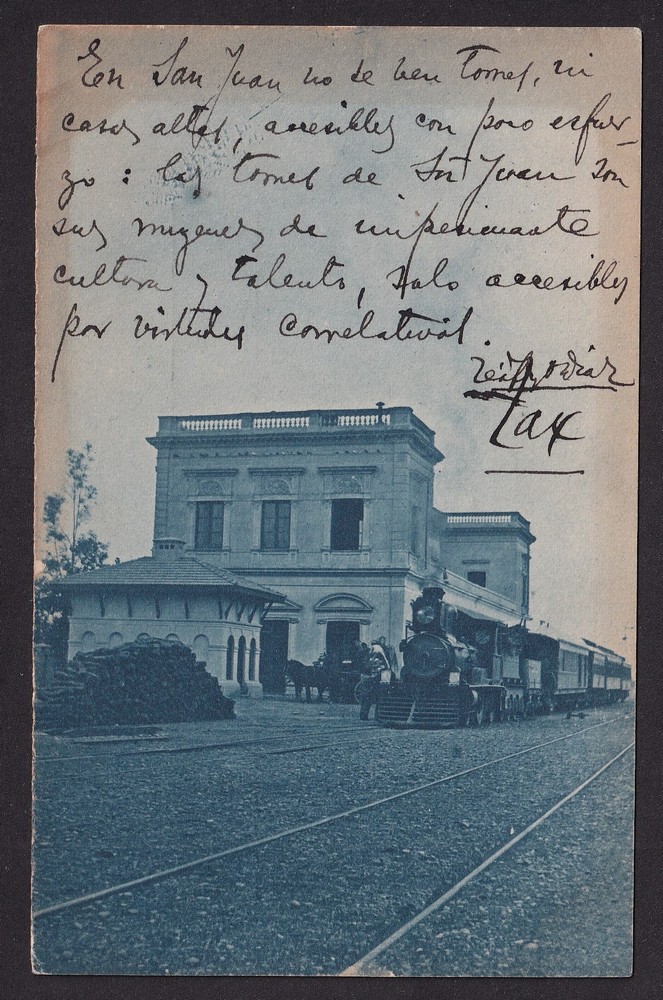 En San Juan no se ven torres, ni
casas altas, accesibles con poco esfuer-
zo : las torres de Sn Juan son
sus mugeres de impresionante
cultura y talento, solo accesibles
por virtudes correlativas.